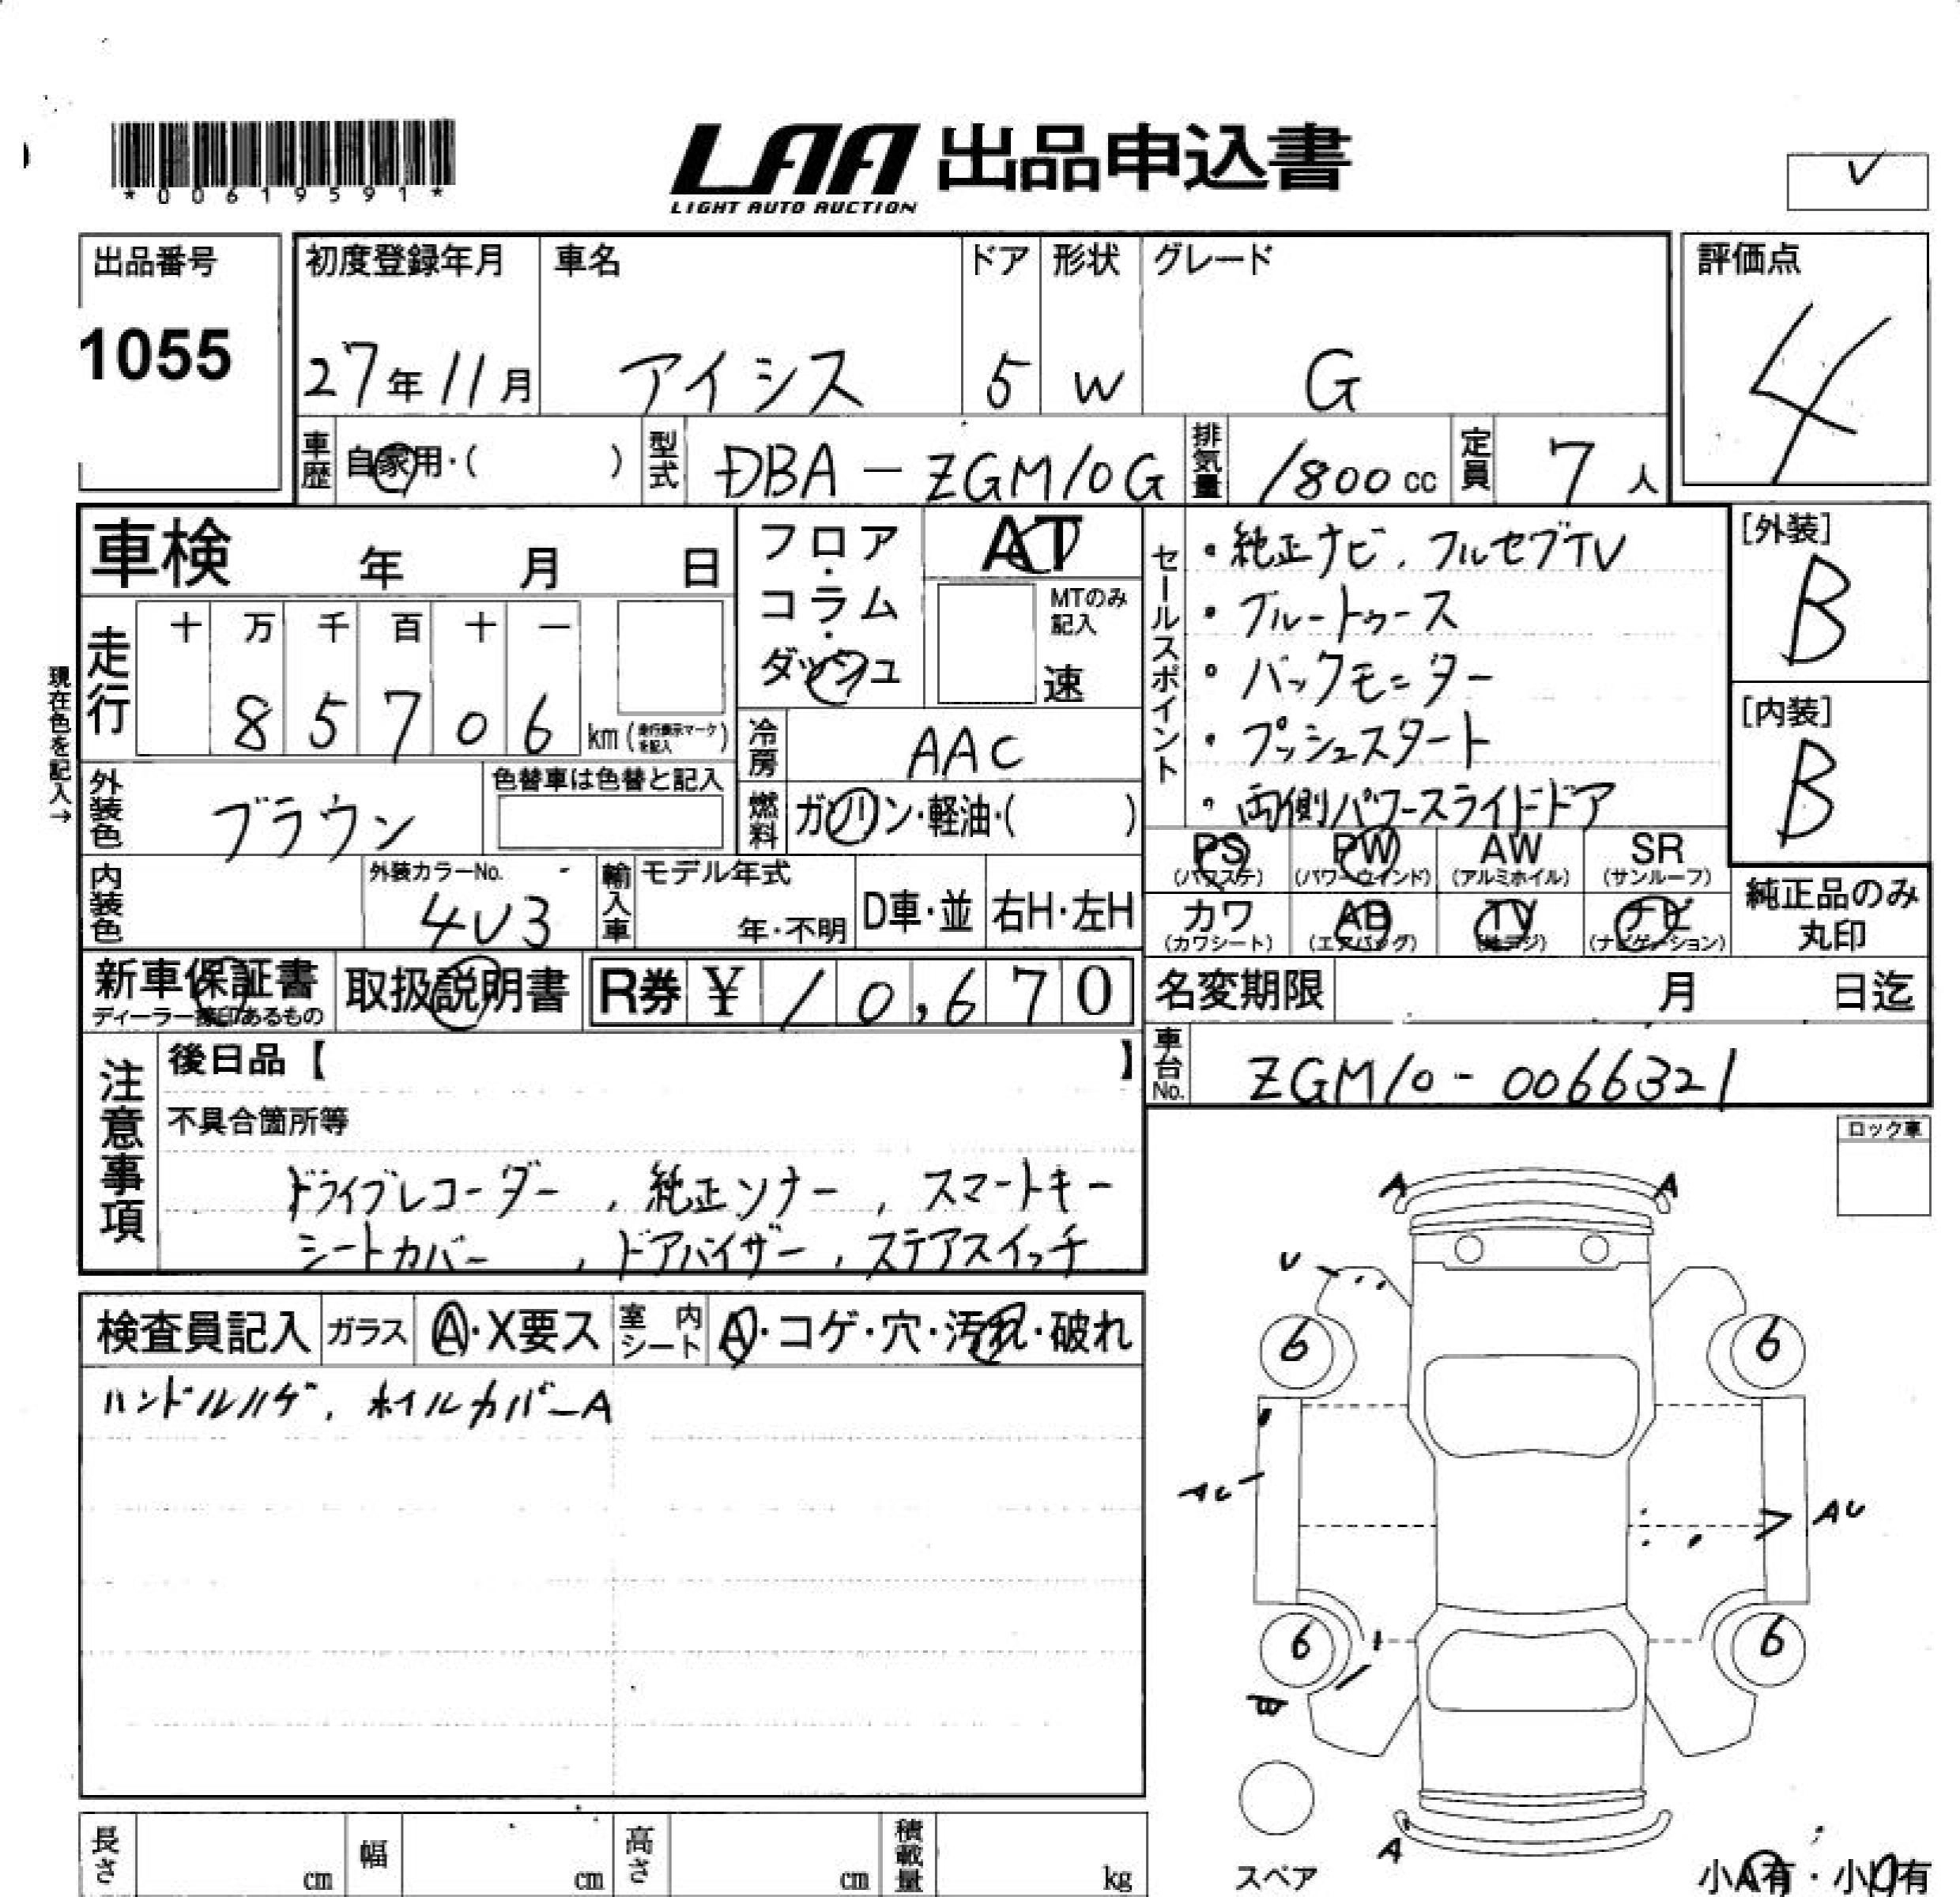 *00619591*
LAA 出品申込書
LIGHT AUTO AUCTION
✓
出品番号
1055
初度登録年月
27年11月
車名
アイシス
ドア
5
形状
W
グレード
G
評価点
4
車歴
自家用・( )
型式
DBA-ZGM10G
排気量
1800cc
定員
7人
車検 年 月 日
フロア・コラム・ダッシュ
AT
MTのみ記入
速
セールスポイント
・純正ナビ、フルセグTV
・ブルートゥース
・バックモニター
・プッシュスタート
・両側パワースライドドア
[外装]
B
[内装]
B
現在色を記入→
走行
十 万 千 百 十 一
8 5 7 0 6
km(走行表示マークを記入)
冷房
AAC
燃料
ガソリン・軽油・( )
外装色
ブラウン
色替車は色替と記入
内装色
外装カラーNo.
4V3
輸入車
モデル年式
年・不明
D車・並
右H・左H
PS
(パワステ)
PW
(パワーウインド)
AW
(アルミホイル)
SR
(サンルーフ)
カワ
(カワシート)
AB
(エアバッグ)
TV
(地デジ)
ナビ
(ナビゲーション)
純正品のみ
丸印
新車保証書
ディーラー捺印あるもの
取扱説明書
R券 ¥ 10,670
名変期限 月 日迄
車台No.
ZGM10-0066321
注意事項
後日品【 】
不具合箇所等
ドライブレコーダー、純正ソナー、スマートキー
シートカバー、ドアバイザー、ステアスイッチ
検査員記入
ガラス
A・X要ス
室内シート
A・コゲ・穴・汚れ・破れ
ハンドルハゲ、ホイルカバーA
ロック車
A A
U
6 6
AU AU
6 6
A
スペア
小A有・小U有
長さ cm
幅 cm
高さ cm
積載量 kg